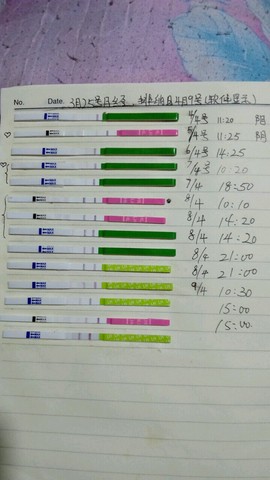 No. Date. 3月25号月经，排卵日4月9号(软件显示)
4/4号 11:20 阴
5/4号 11:25 阴
6/4号 14:25
7/4号 10:20
7/4 18:50
8/4 10:10
8/4 14:20
8/4 14:20
8/4 21:00
8/4 21:00
9/4 10:30
15:00
15:00